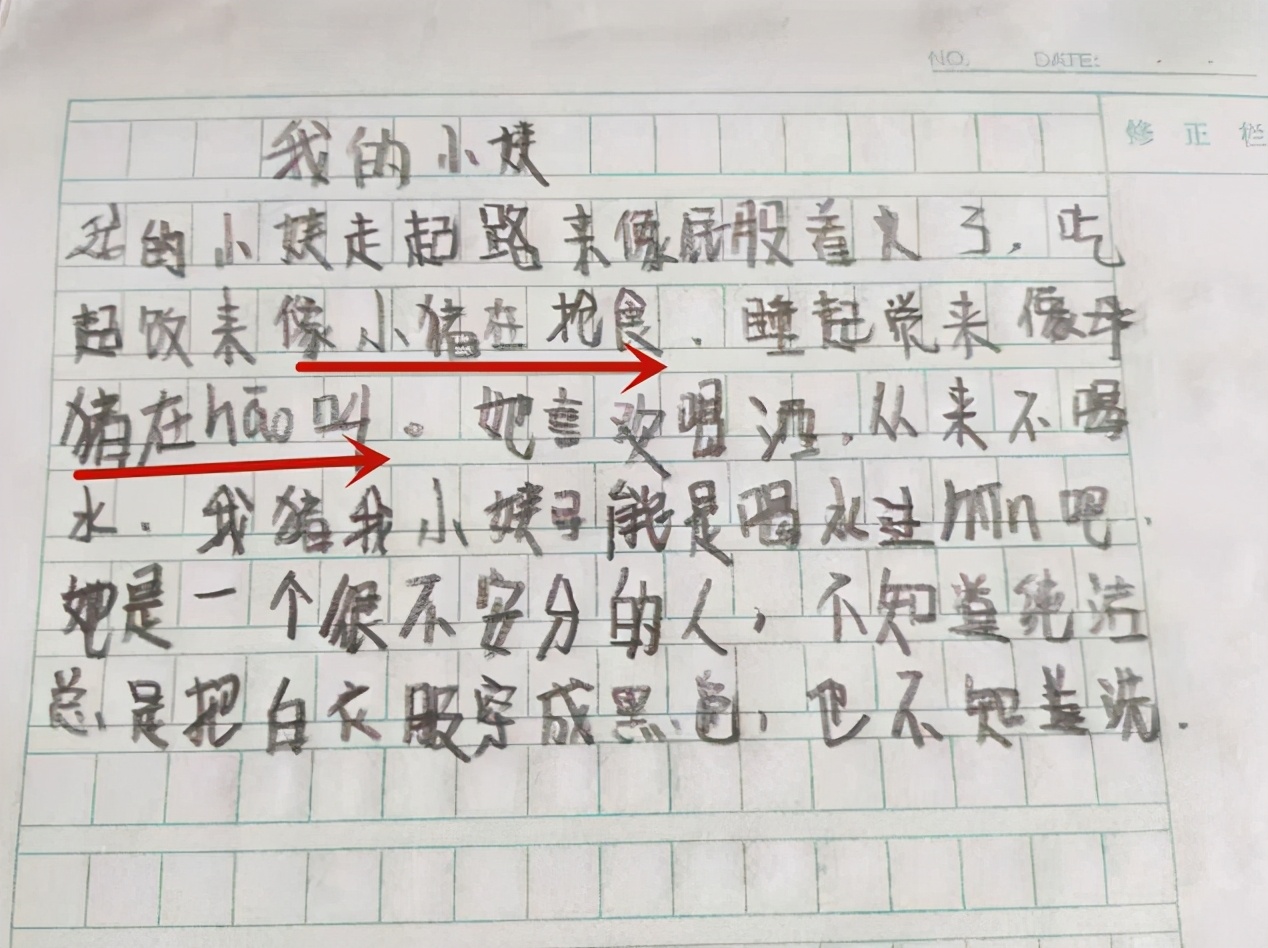 NO. DATE:
修正栏
我的小姨
我的小姨走起路来像屁股着火了,吃
起饭来像小猪在抢食.睡起觉来像母
猪在hāo叫。她喜欢喝酒,从来不喝
水.我猪我小姨可能是喝水过mǐn吧.
她是一个很不安分的人,不知道纯洁
总是把白衣服穿成黑色,也不知道洗.